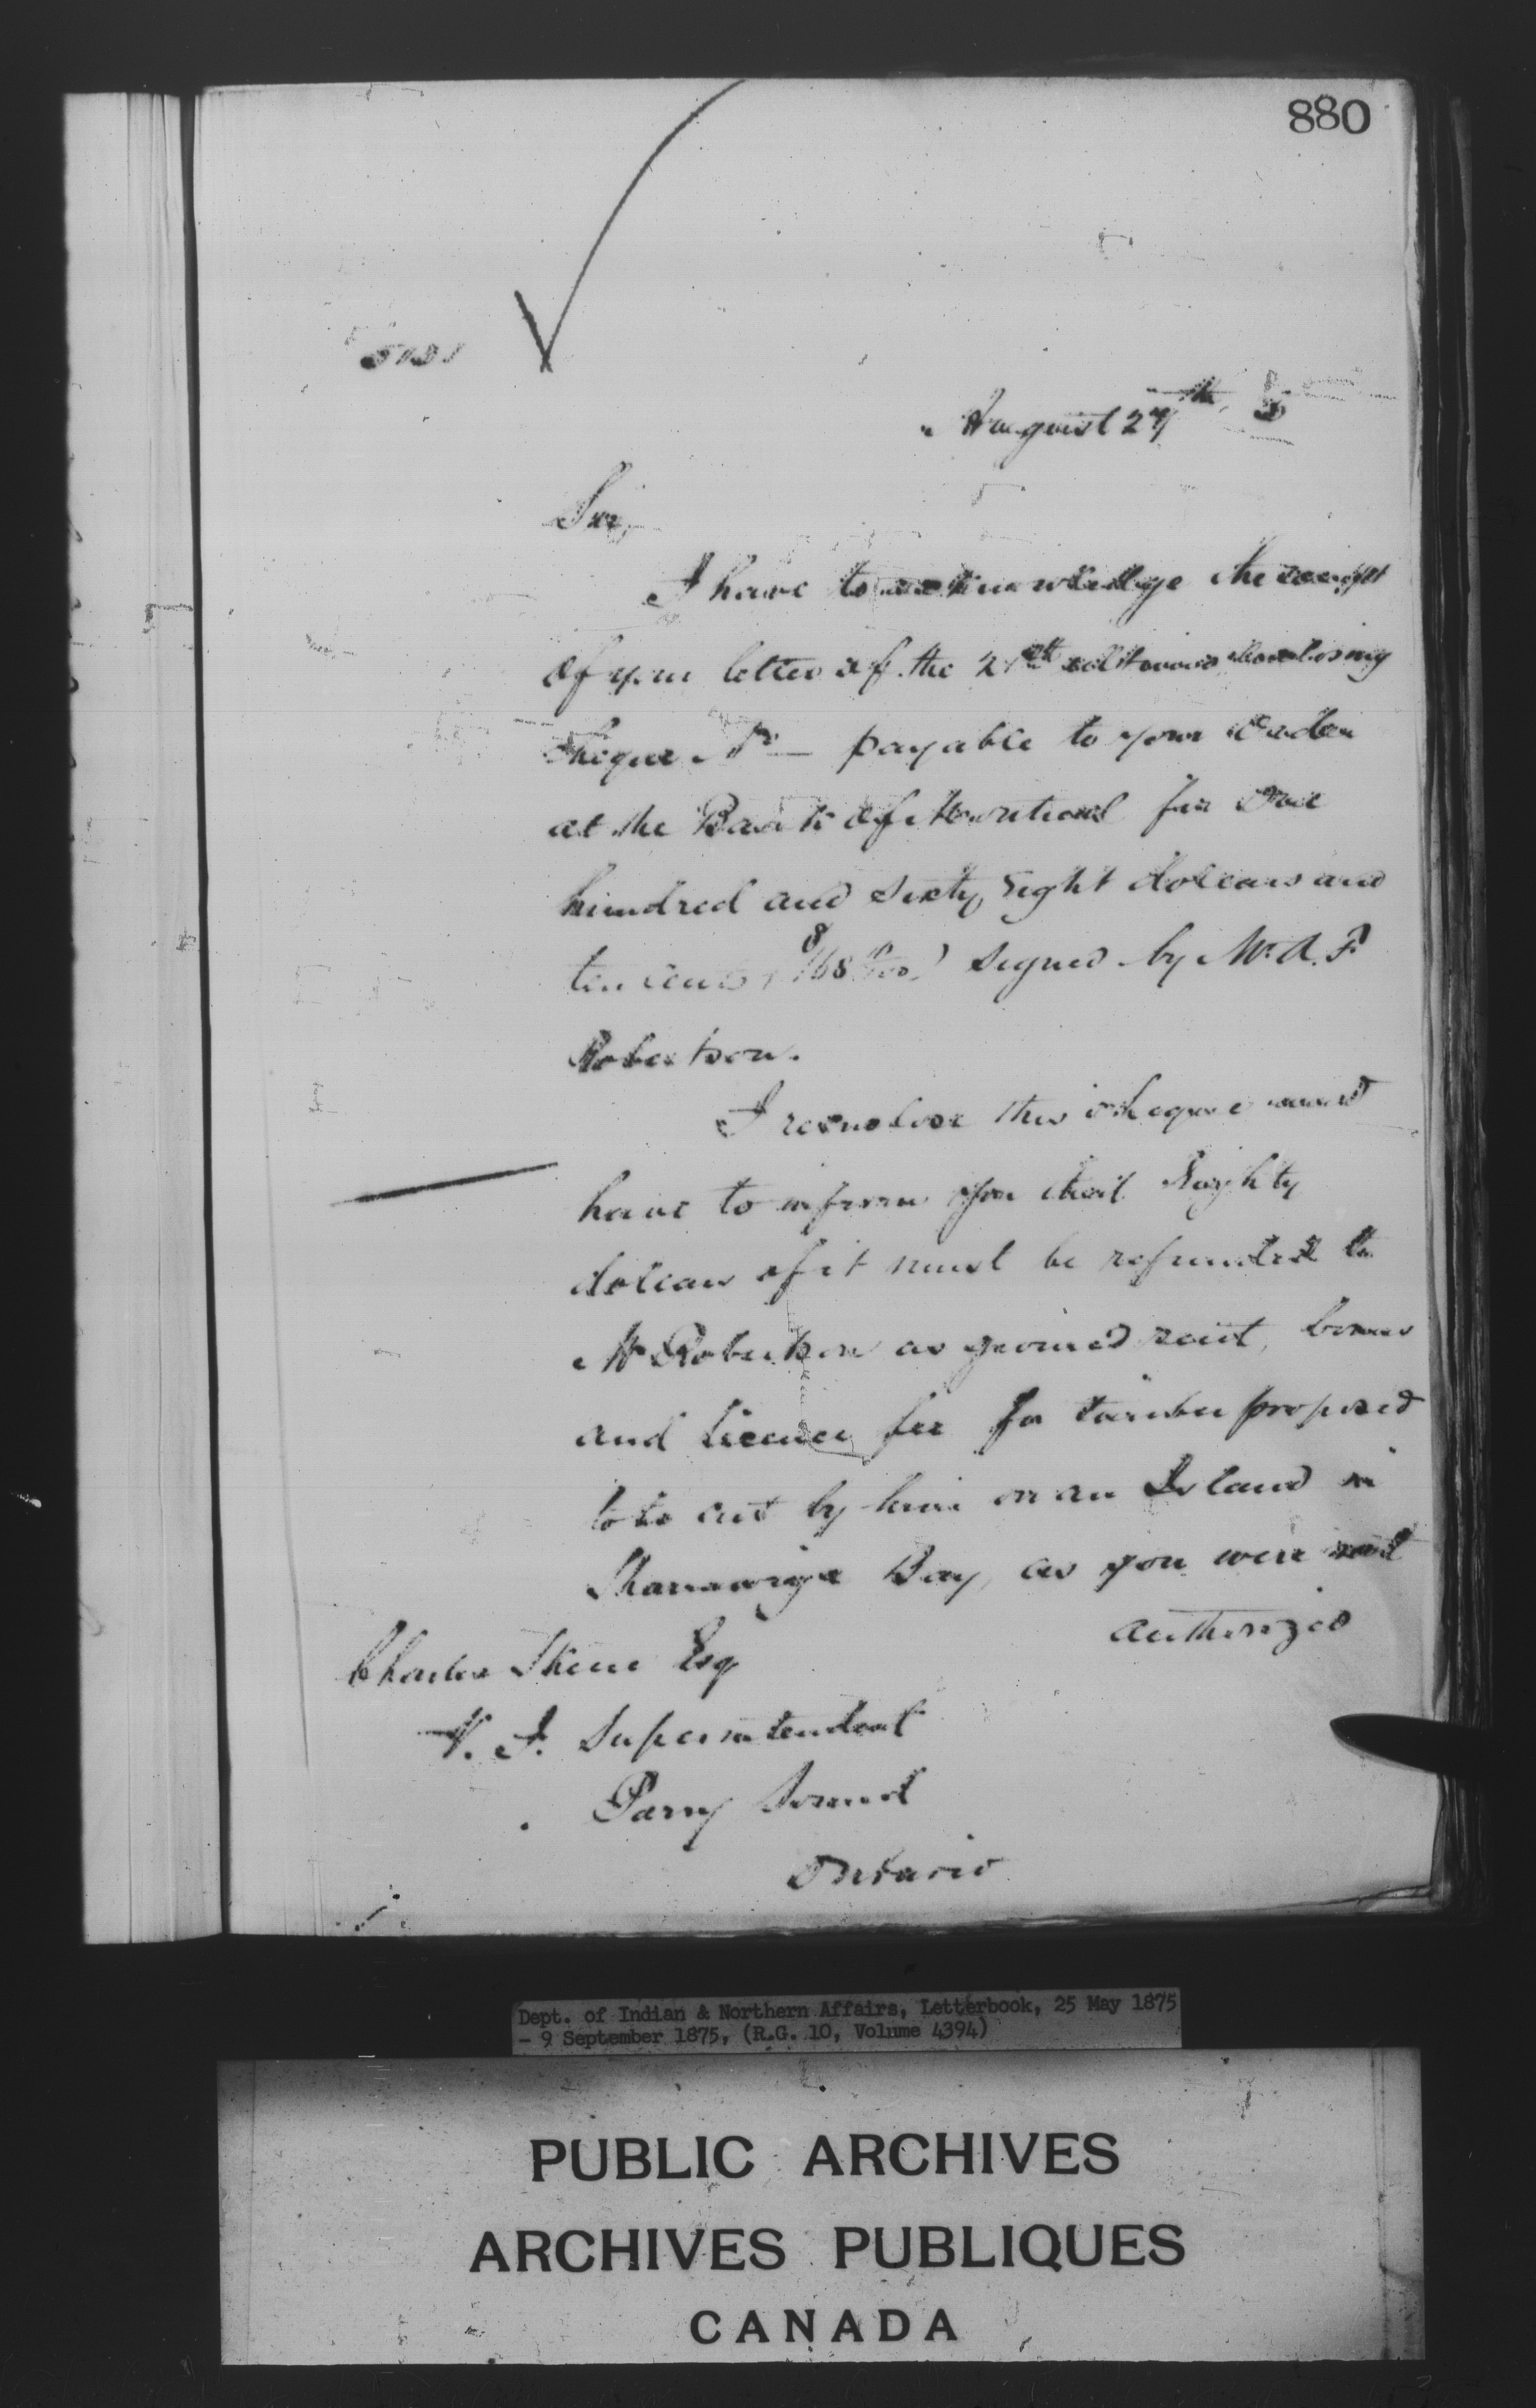 880
August 27th 5
Sir,
I have to acknowledge the receipt
of your letter of the 21st enclosing
cheque No — payable to your order
at the Bank of Montreal for one
hundred and sixty eight dollars and
ten cents ($168 10/100) signed by Mr. A. P.
Robertson.
I reenclose this cheque and
have to inform you that Eighty
dollars of it must be refunded to
Mr Robertson as ground rent, bonus
and license fee for timber proposed
to be cut by him on an Island in
Shawanaga Bay, as you were not
authorized
Charles Skene Esq
V. S. Superintendent
Parry Sound
Ontario
Dept. of Indian & Northern Affairs, Letterbook, 25 May 1875
- 9 September 1875, (R.G. 10, Volume 4394)
PUBLIC ARCHIVES
ARCHIVES PUBLIQUES
CANADA